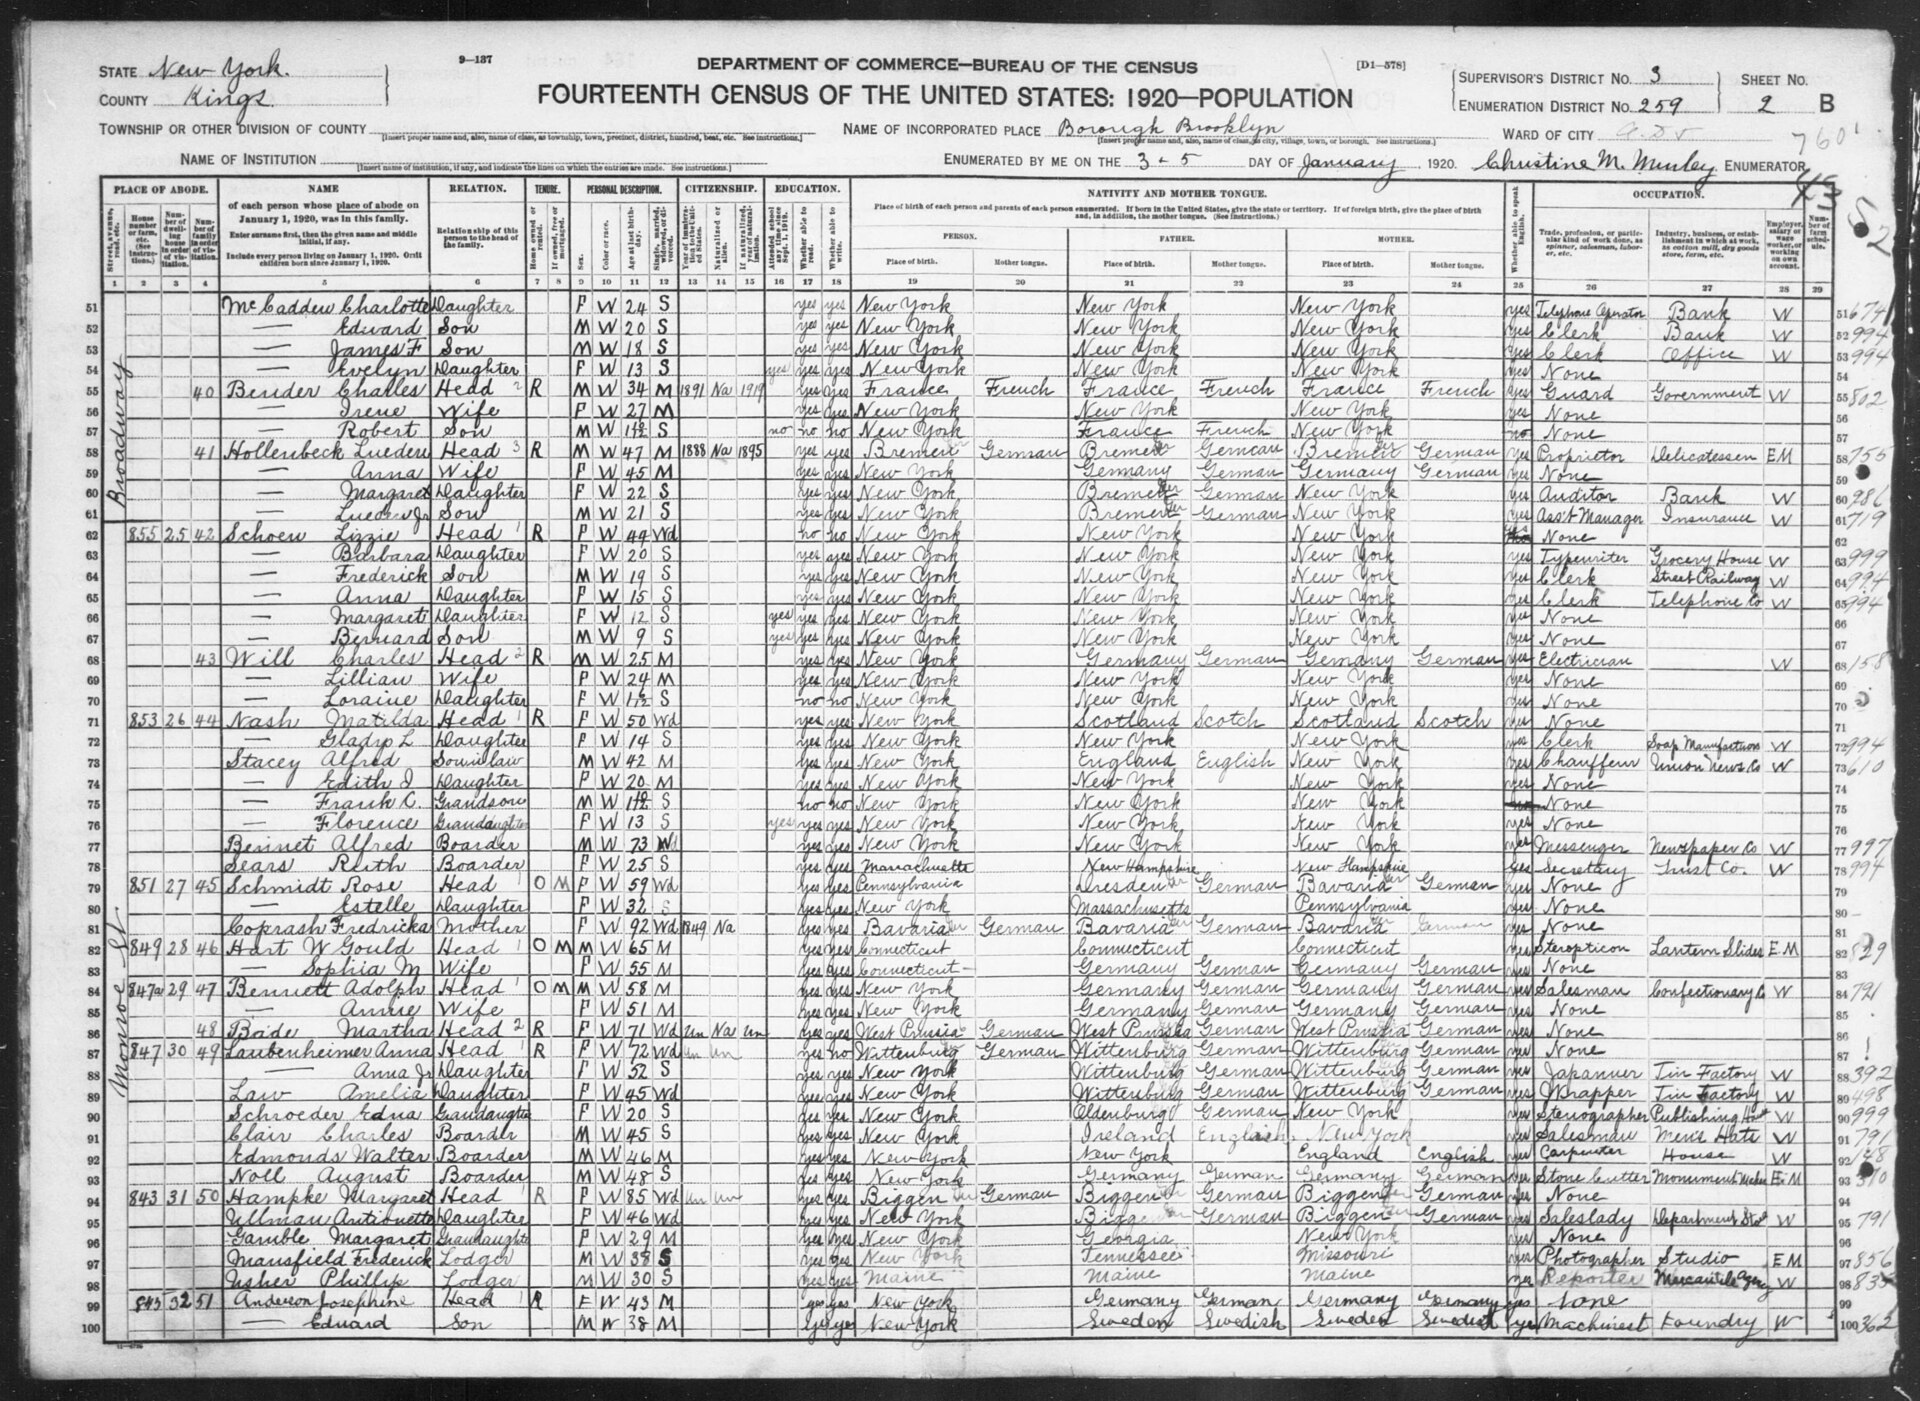 9–137
DEPARTMENT OF COMMERCE—BUREAU OF THE CENSUS
[D1–578]
STATE New York.
COUNTY Kings
FOURTEENTH CENSUS OF THE UNITED STATES: 1920—POPULATION
SUPERVISOR'S DISTRICT NO. 3
ENUMERATION DISTRICT NO. 259
SHEET NO. 2 B
TOWNSHIP OR OTHER DIVISION OF COUNTY
NAME OF INCORPORATED PLACE Borough Brooklyn
WARD OF CITY
NAME OF INSTITUTION
ENUMERATED BY ME ON THE 3 - 5 DAY OF January 1920. Christine M. ENUMERATOR
PLACE OF ABODE. NAME RELATION. TENURE. PERSONAL DESCRIPTION. CITIZENSHIP. EDUCATION. NATIVITY AND MOTHER TONGUE. OCCUPATION.
Broadway
Monroe St.
51 McCadden Charlotte Daughter F W 24 S yes yes New York New York New York yes Telephone Operator Bank W 674
52 — Edward Son M W 20 S yes yes New York New York New York yes Clerk Bank W 994
53 — James F Son M W 18 S yes yes New York New York New York yes Clerk Office W 994
54 — Evelyn Daughter F W 13 S yes yes yes New York New York New York yes None
55 40 Bender Charles Head 2 R M W 34 M 1891 Na 1919 yes yes France French France French France French yes Guard Government W 802
56 — Irene Wife F W 27 M yes yes New York New York New York yes None
57 — Robert Son M W S no no no New York France French New York no None
58 41 Hollenbeck Lueden Head 3 R M W 47 M 1888 Na 1895 yes yes Bremen German Bremen German Bremen German yes Proprietor Delicatessen EM 755
59 — Anna Wife F W 45 M yes yes New York Germany German Germany German yes None
60 — Margaret Daughter F W 22 S yes yes New York Bremen German New York yes Auditor Bank W 986
61 — Lueden Jr Son M W 21 S yes yes New York Bremen German New York yes Ass't Manager Insurance W 719
62 855 25 42 Schoen Lizzie Head 1 R F W 44 Wd no no New York New York New York None
63 — Barbara Daughter F W 20 S yes yes New York New York New York yes Typewriter Grocery House W 999
64 — Frederick Son M W 19 S yes yes New York New York New York yes Clerk Street Railway W 994
65 — Anna Daughter F W 15 S yes yes New York New York New York yes Clerk Telephone Co W 994
66 — Margaret Daughter F W 12 S yes yes yes New York New York New York yes None
67 — Bernard Son M W 9 S yes yes yes New York New York New York yes None
68 43 Will Charles Head 2 R M W 25 M yes yes New York Germany German Germany German yes Electrician W 158
69 — Lillian Wife F W 24 M yes yes New York New York New York yes None
70 — Loraine Daughter F W S no no New York New York New York no None
71 853 26 44 Nash Matilda Head 1 R F W 50 Wd yes yes New York Scotland Scotch Scotland Scotch yes None
72 — Gladys L Daughter F W 14 S yes yes New York New York New York yes Clerk Soap W 994
73 Stacey Alfred Son in law M W 42 M yes yes New York England English New York yes Chauffeur Union News Co W 610
74 — Edith I Daughter F W 20 M yes yes New York New York New York yes None
75 — Frank C. Grandson M W S no no New York New York New York None
76 — Florence Grandaughter F W 13 S yes yes yes New York New York New York yes None
77 Bennet Alfred Boarder M W 73 Wd yes yes New York New York New York yes Messenger Newspaper Co W 997
78 Sears Ruth Boarder F W 25 S yes yes Massachusetts New Hampshire New Hampshire yes Secretary Trust Co. W 994
79 851 27 45 Schmidt Rose Head 1 O M F W 59 Wd yes yes Pennsylvania Dresden German Bavaria German yes None
80 — Estelle Daughter F W 32 S yes yes New York Massachusetts Pennsylvania yes None
81 Coprash Fredricka Mother F W 92 Wd 1849 Na yes yes Bavaria German Bavaria German Bavaria German yes None
82 849 28 46 Hart W Gould Head 1 O M M W 65 M yes yes Connecticut Connecticut Connecticut yes Steropticon Lantern Slides EM 829
83 — Sophia M Wife F W 55 M yes yes Connecticut Germany German Germany German yes None
84 847a 29 47 Bennett Adolph Head 1 O M M W 58 M yes yes New York Germany German Germany German yes Salesman Confectionary Co W 791
85 — Annie Wife F W 51 M yes yes New York Germany German Germany German yes None
86 48 Bade Martha Head 2 R F W 71 Wd Un Na Un yes yes West Prussia German West Prussia German West Prussia German yes None
87 847 30 49 Laubenheimer Anna Head 1 R F W 72 Wd Un Un yes no Wittenburg German Wittenburg German Wittenburg German yes None
88 — Anna Jr Daughter F W 52 S yes yes New York Wittenburg German Wittenburg German yes Japanner Tin Factory W 392
89 Law Amelia Daughter F W 45 Wd yes yes New York Wittenburg German Wittenburg German yes Wrapper Tin Factory W 498
90 Schroeder Edna Grandaughter F W 20 S yes yes New York Oldenburg German New York yes Stenographer Publishing W 999
91 Clair Charles Boarder M W 45 S yes yes New York Ireland English New York yes Salesman Men's Hats W 791
92 Edmonds Walter Boarder M W 46 M yes yes New York New York England English yes Carpenter House W 148
93 Noll August Boarder M W 48 S yes yes New York Germany German Germany German yes Stone Cutter Monument EM 310
94 843 31 50 Hampke Margaret Head 1 R F W 85 Wd Un Un yes yes Biggen German Biggen German Biggen German yes None
95 Ullman Antionette Daughter F W 46 Wd yes yes New York Biggen German Biggen German yes Saleslady Department Store W 791
96 Gamble Margaret Grandaughter F W 29 M yes yes New York Georgia New York yes None
97 Mansfield Frederick Lodger M W 38 S yes yes New York Tennessee Missouri yes Photographer Studio EM 856
98 Usher Phillip Lodger M W 30 S yes yes Maine Maine Maine yes Reporter Mercantile Agency W 835
99 32 51 Anderson Josephine Head 1 R F W 43 M yes yes New York Germany German Germany Germany yes None
100 — Edward Son M W 38 M yes yes New York Sweden Swedish Sweden Swedish yes Machinest Foundry W 362